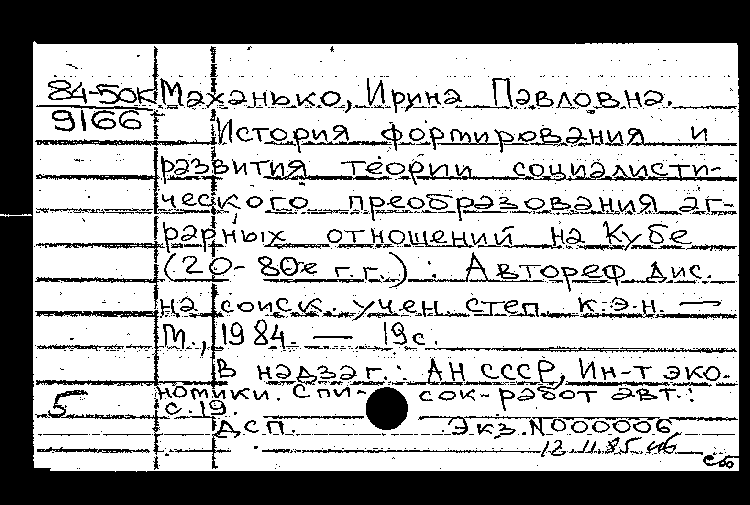 84-50К Маханько, Ирина Павловна.
9166 История формирования и
развития теории социалисти-
ческого преобразования аг-
рарных отношений на Кубе
(20-80х г.г.) : Автореф дис.
на соиск. учен степ к.э.н. —
М., 1984. — 19с.
В надзаг.: АН СССР, Ин-т эко-
номики. Спи- сок-работ авт.:
5 с.19.
ДСП. Экз.N000006
12.11.85